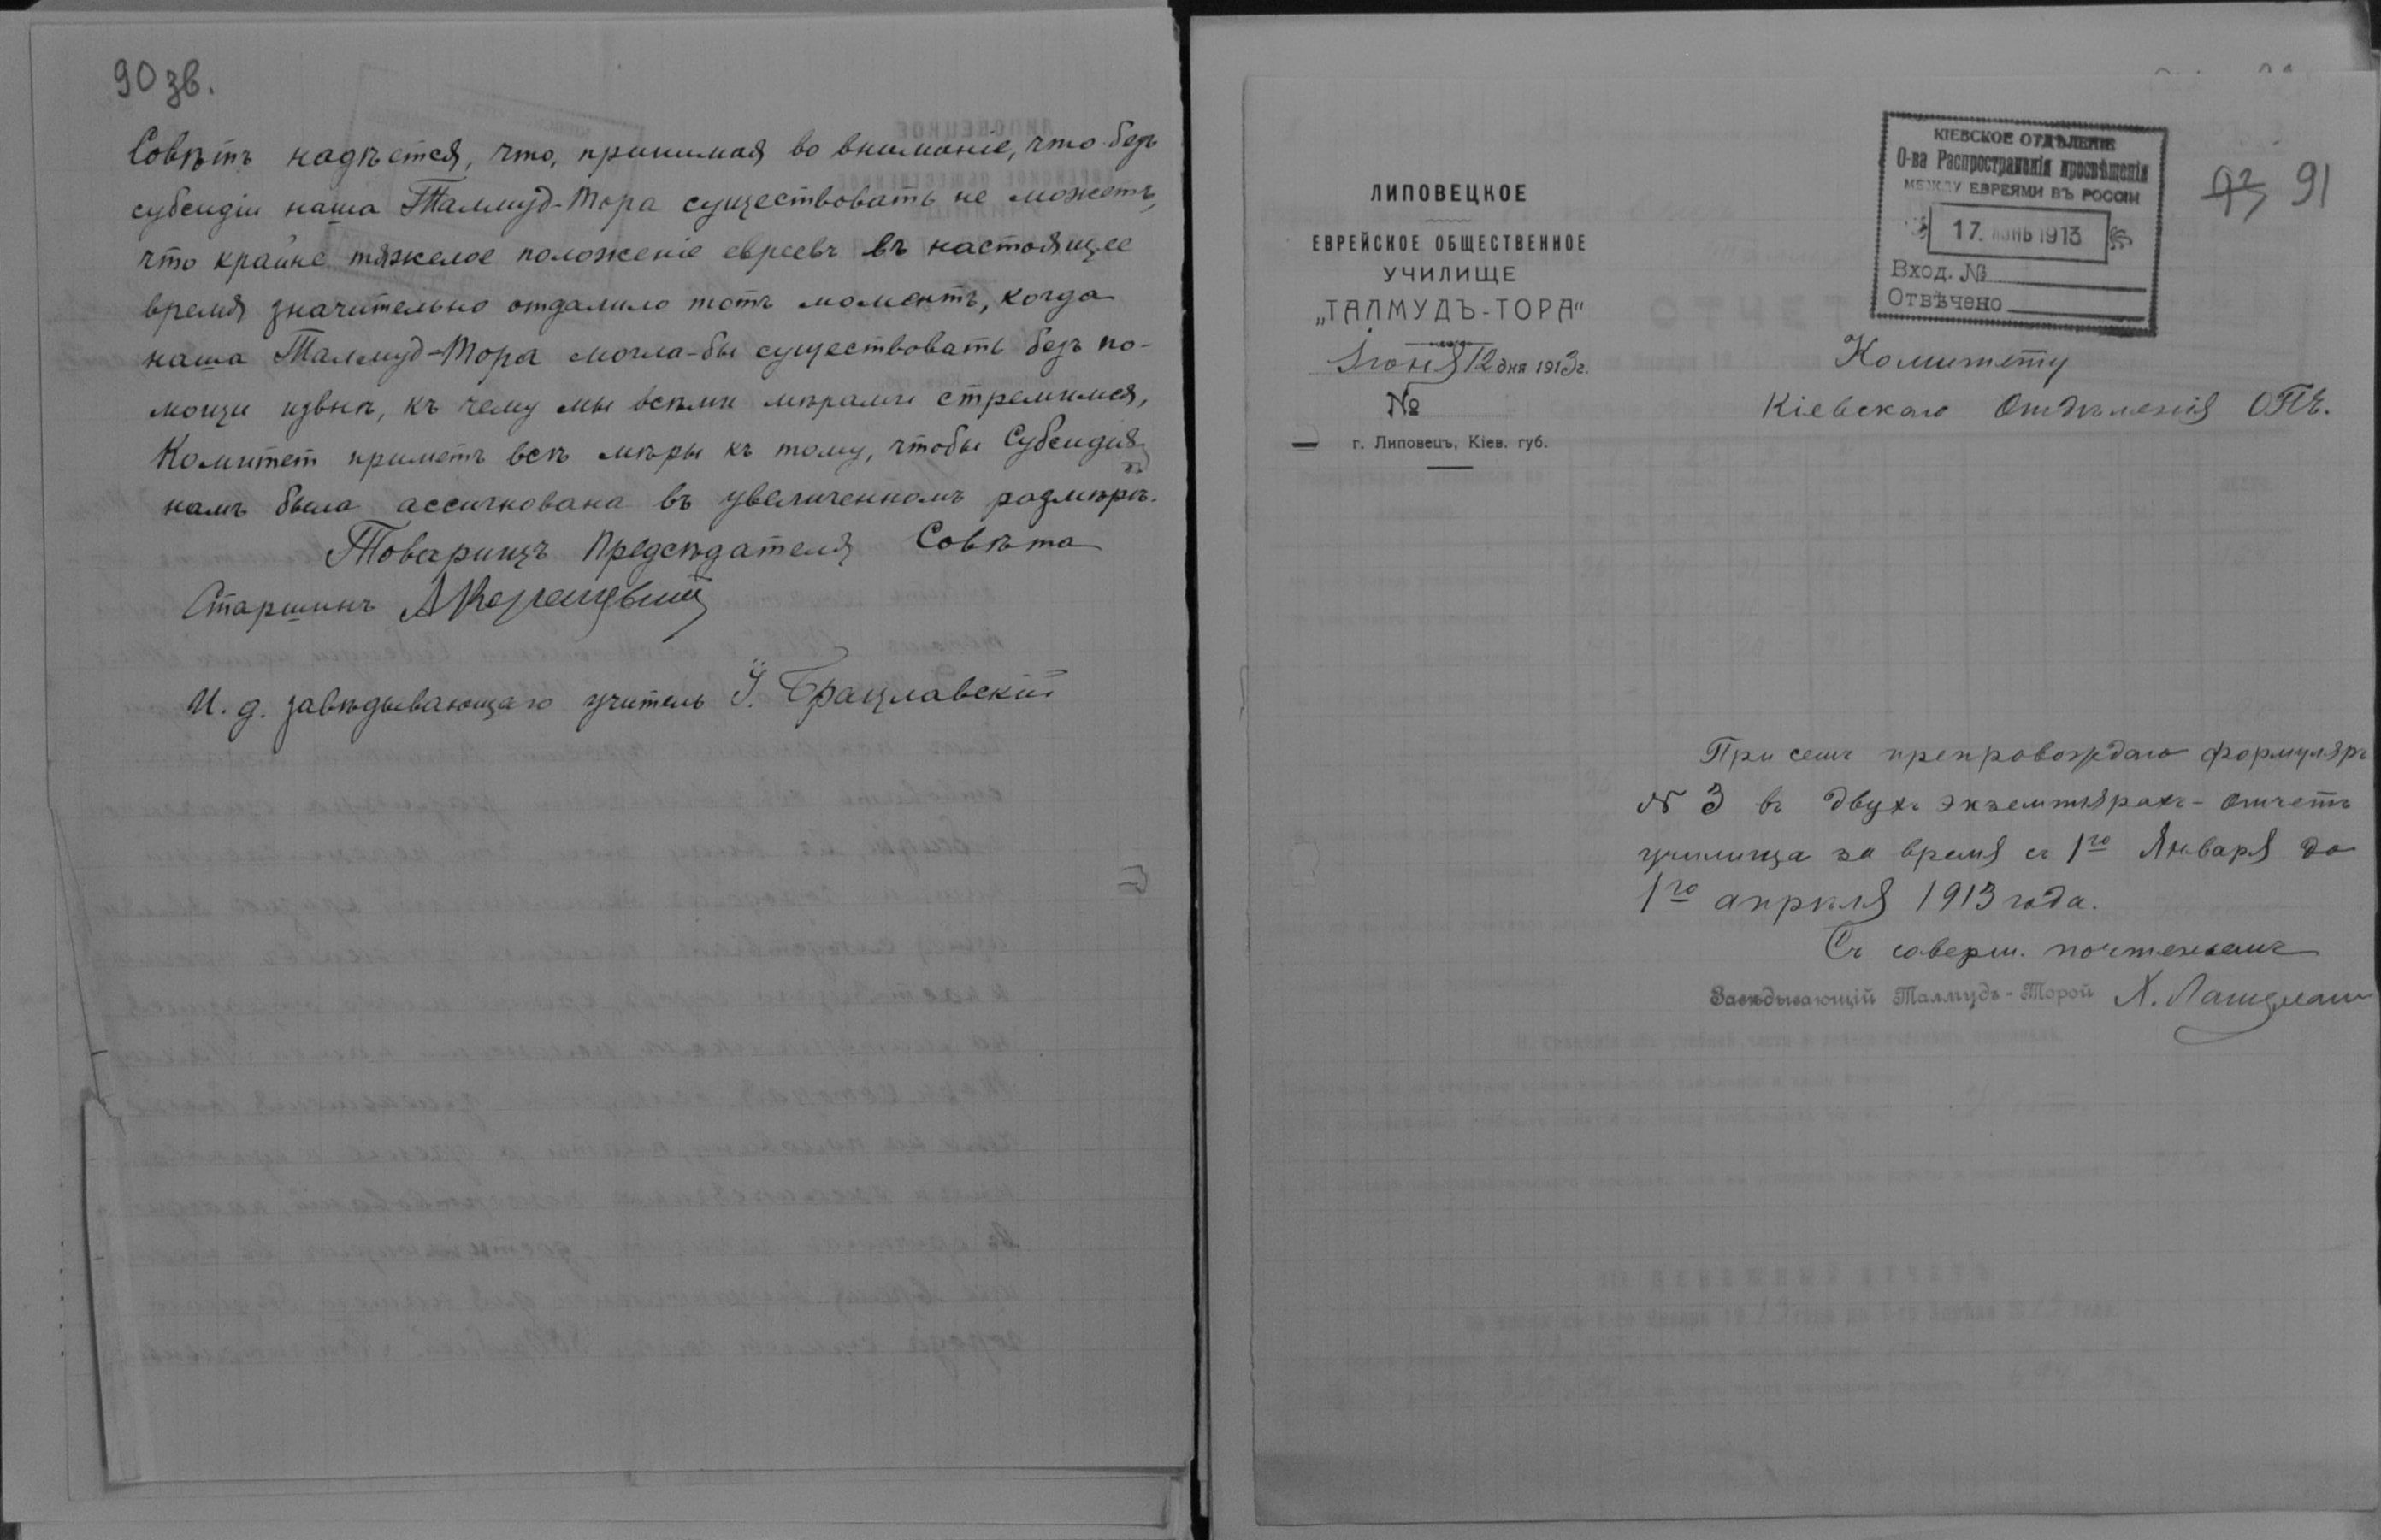 90 зв.
Совѣтъ надѣется, что, принимая во вниманіе, что безъ
субсидіи наша Талмуд-Тора существовать не можетъ,
что крайне тяжелое положеніе евреевъ въ настоящее
время значительно отдалило тотъ моментъ, когда
наша Талмуд-Тора могла-бы существовать безъ по-
мощи извнѣ, къ чему мы всѣми мѣрами стремимся,
Комитет приметъ всѣ мѣры къ тому, чтобы Субсидія
намъ была ассигнована въ увеличенномъ размѣрѣ.
Товарищъ Предсѣдателя Совѣта
Старшинъ
И. д. завѣдывающаго учитель І. Брацлавскій
ЛИПОВЕЦКОЕ
ЕВРЕЙСКОЕ ОБЩЕСТВЕННОЕ
УЧИЛИЩЕ
„ТАЛМУДЪ-ТОРА"
Іюня 12 дня 1913 г.
№
г. Липовецъ, Кіев. губ.
КІЕВСКОЕ ОТДѢЛЕНІЕ
О-ва Распространенія просвѣщенія
МЕЖДУ ЕВРЕЯМИ ВЪ РОССІИ
17. ІЮНЬ 1913
Вход. №
Отвѣчено
91
Комитету
Кіевскаго Отдѣленія ОПЕ.
При семъ препровождаю формуляръ
№ 3 въ двухъ экземплярахъ - отчетъ
училища за время съ 1го Января до
1го апрѣля 1913 года.
Съ соверш. почтеніемъ
Завѣдывающій Талмудъ-Торой